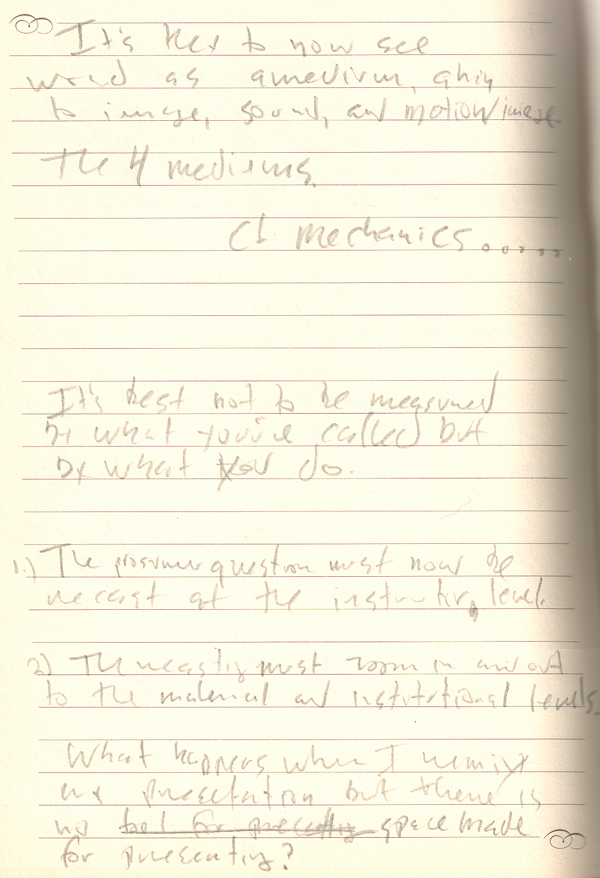 It's key to now see
word as a medium, akin
to image, sound, and motion/image.
The 4 mediums.
mechanics.....
It's best not to be measured
by what you're called but
by what you do.
1.) The prosumer question must now be
recast at the instructional level.
2) The must zoom in and out
to the material and institutional levels.
What happens when I remix
my presentation but there is
no tool for presenting space made
for presenting?